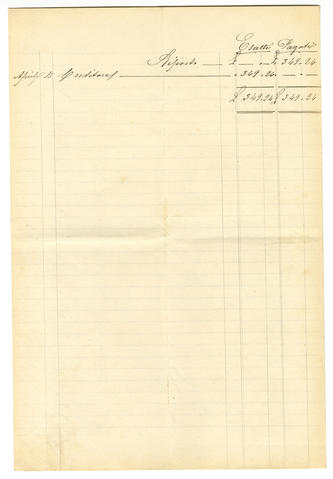 Esatte Pagate
Riporto £ — . — £ 349.24
Aprile Creditores " 349.24 — . —
£ 349.24 £ 349.24